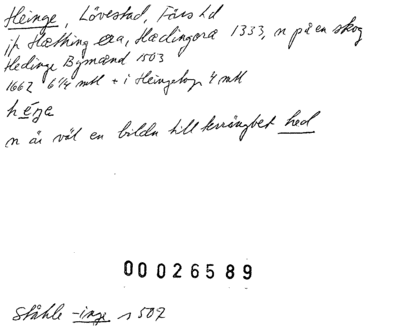 Heinge, Lövestad, Färs hd
jfr Hæthing era, Hædingora 1333, n på en skog
Hedinge Bymænd 1503
1662 6 1/4 mtl + i Heingetorp 4 mtl
n är väl en bildn till terrängbet hed
00026589
Ståhle -inge s 502